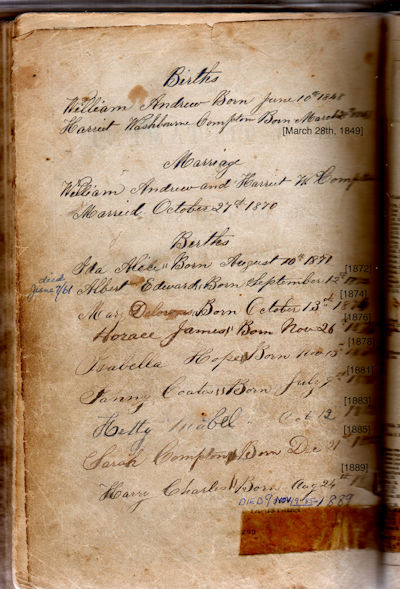 Births
William Andrew Born June 10th 1848
Harriet Washbourne Compton Born March
[March 28th, 1849]
Marriage
William Andrew and Harriet W Compton
Married October 27th 1870
Births
Ida Alice " Born August 10th 1871
[1872]
died June 7/61
Albert Edward " Born September 12th
[1874]
Mary Delorous Born October 13th
[1876]
Horace James " Born Nov 26
[1878]
Isabella Hope " Born Nov 13th
[1881]
Fanny Coates " Born July 9th
[1883]
Hetty Mabel " Oct 12
[1885]
Sarah Compton " Born Dec 21
[1889]
Harry Charles " Born Aug 24th
DIED 9 NOV 1889